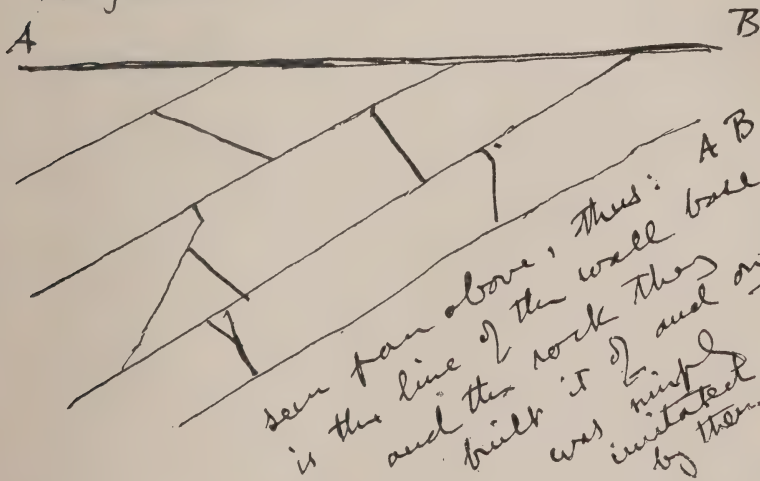 A
B
seen from above, thus: A B
is the line of the wall base
and the rock they
built it of and on
was simply
imitated
by them.